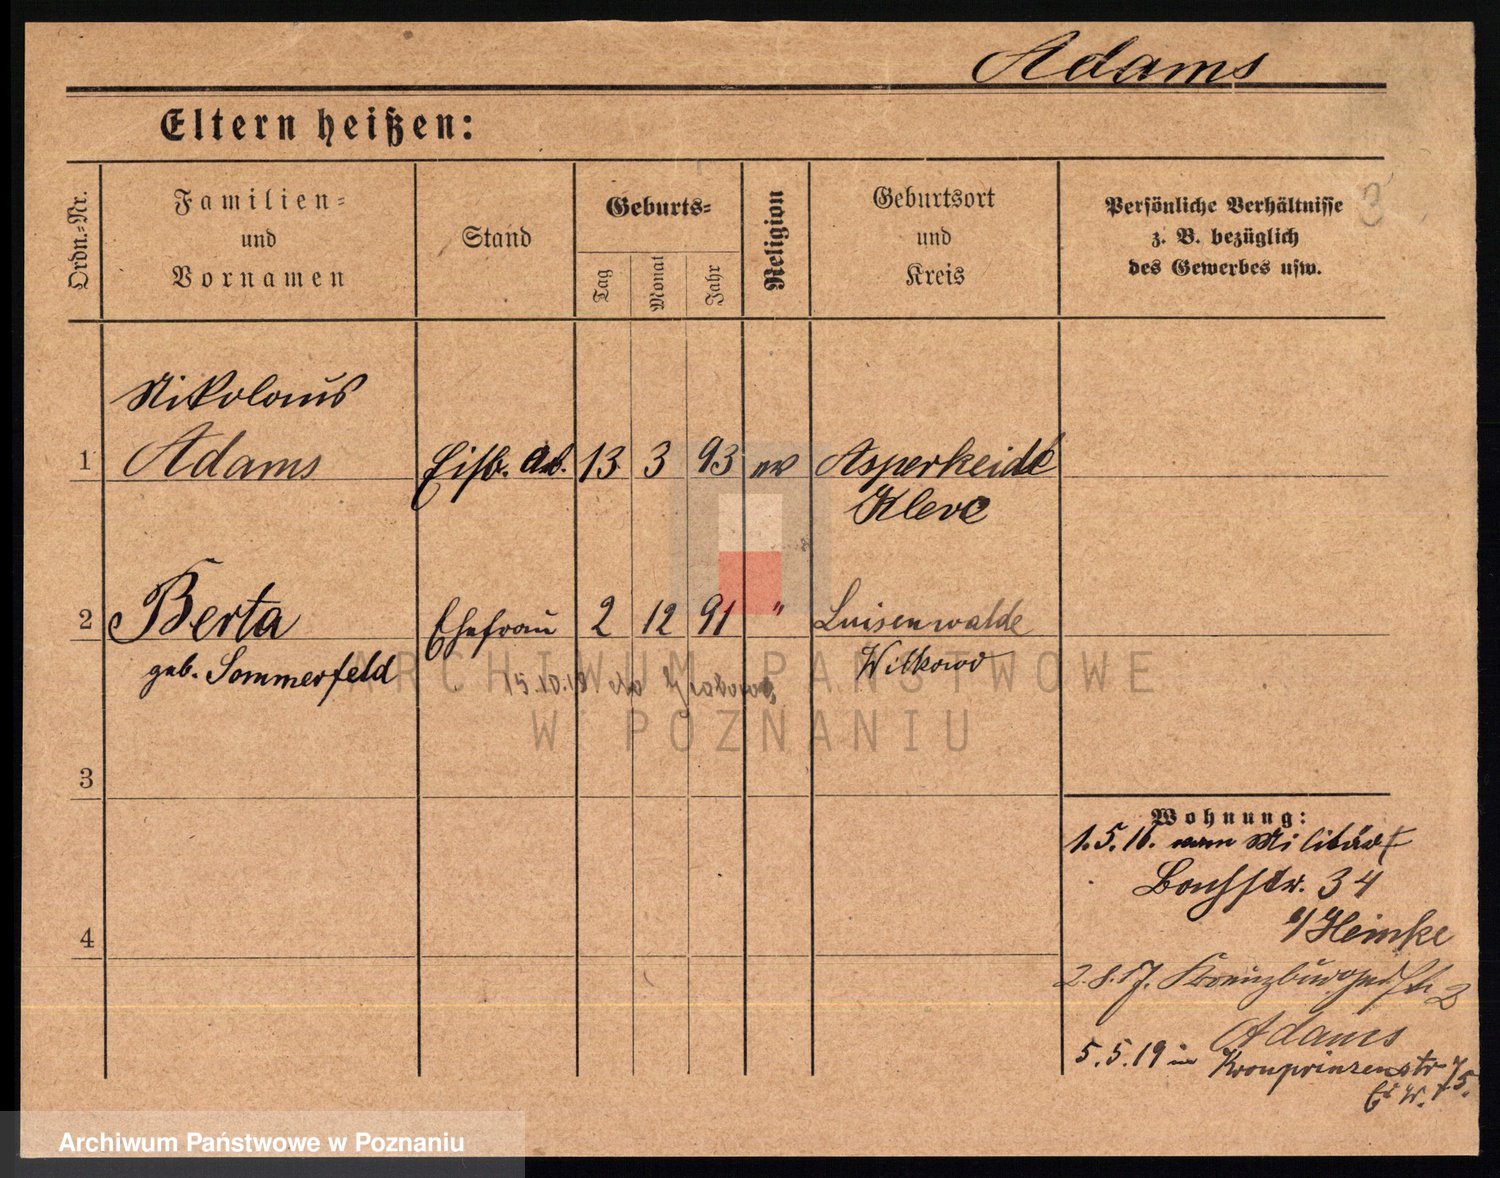 Adams
Eltern heißen:
Ordn.-Nr.
Familien-
und
Vornamen
Stand
Geburts-
Tag
Monat
Jahr
Religion
Geburtsort
und
Kreis
Persönliche Verhältnisse
z. B. bezüglich
des Gewerbes usw.
3
Nikolaus
1 Adams Eisb. Arb. 13 3 93 ev Asperheide
Kleve
2 Berta Ehefrau 2 12 91 " Luisenwalde
geb. Sommerfeld Witkowo
15.10.18
ARCHIWUM PAŃSTWOWE
W POZNANIU
3
Wohnung:
1.5.16. vom Militär
34
4
b/ Heinke
2.8.17. Kreuzburgerstr. 2
Adams
5.5.19 in Kronprinzenstr 75.
Archiwum Państwowe w Poznaniu